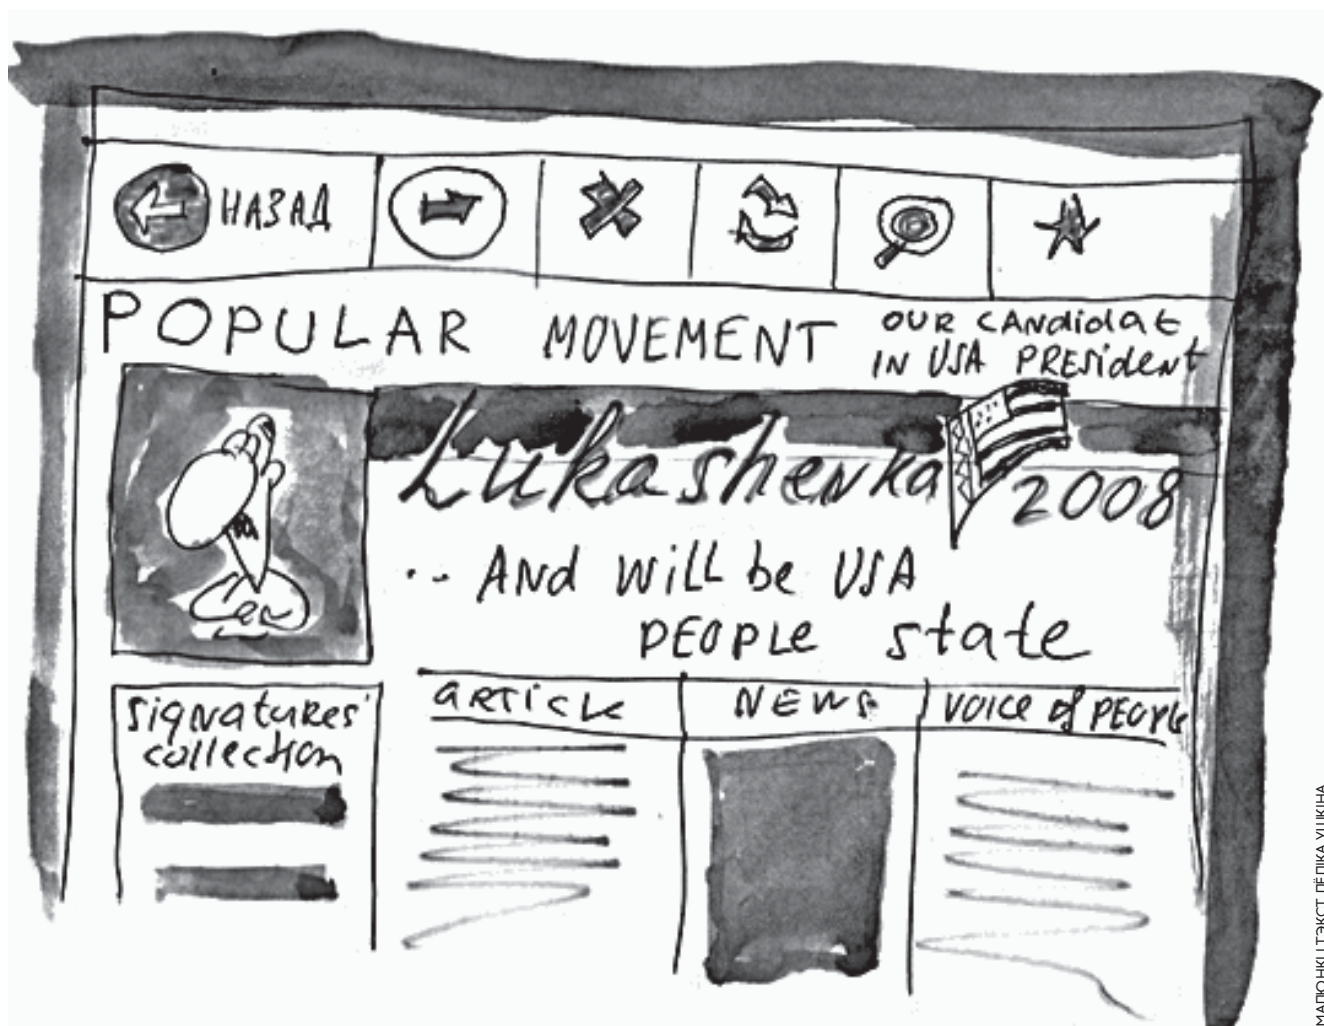 НАЗАД
POPULAR MOVEMENT
OUR CANdidat
IN USA PRESident
Lukashenka 2008
.. ANd will be USA
PEOPLE state
signatures'
collection
ARTicle
NEWS
VOICE of PEOPLE
МАЛЮНКІ І ТЭКСТ ЛЁЛІКА УШКІНА